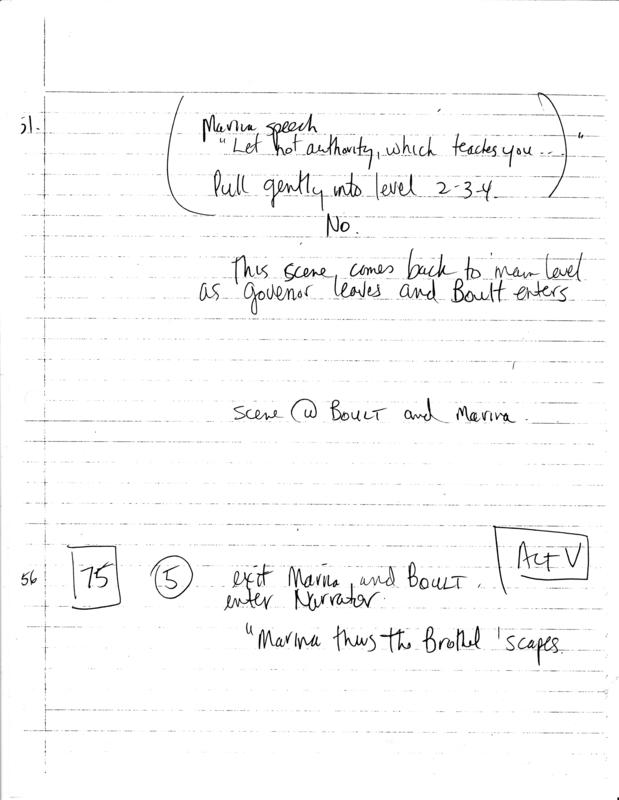 51.
Marina speech
"Let not authority, which teaches you ... "
Pull gently into level 2-3-4.
No.
This scene comes back to main level
as Govenor leaves and Boult enters
scene @ BOULT and Marina.
56 75 5 exit Marina and BOULT. Act V
enter Narrator.
"Marina thus the Brothel 'scapes.